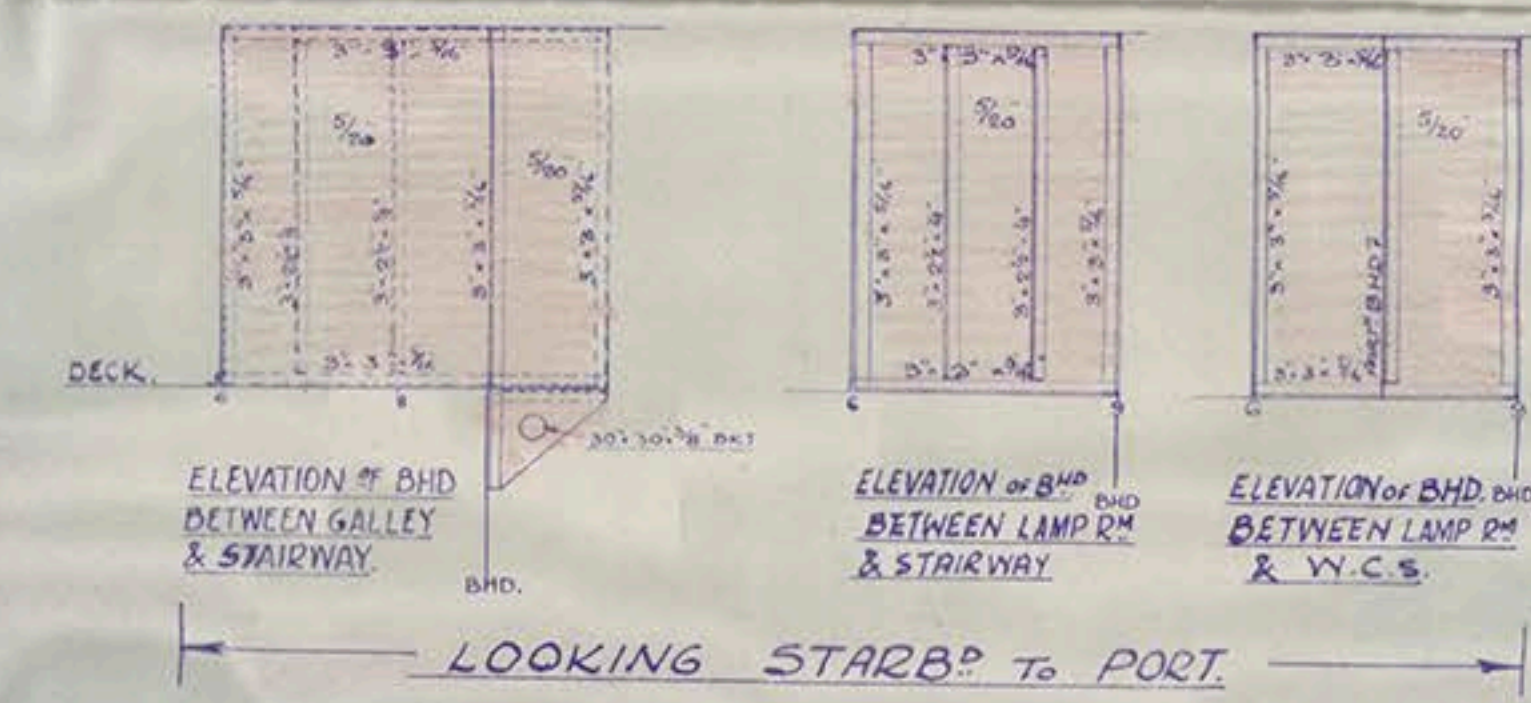 3" × 3" × 5/16"
5/20"
5/20"
3" × 3" × 5/16"
3" × 2½" × ¼"
3" × 3" × 5/16"
3" × 3" × 5/16"
3" × 3" × 5/16"
DECK.
8
30" × 30" × 3/8" BKT
ELEVATION OF BHD
BETWEEN GALLEY
& STAIRWAY.
BHD.
3" × 3" × 5/16"
5/20"
3" × 3" × 5/16"
3" × 2½" × ¼"
3" × 2½" × ¼"
3" × 3" × 5/16"
3" × 3" × 5/16"
6
9
ELEVATION OF BHD
BHD
BETWEEN LAMP RM
& STAIRWAY
3" × 3" × 5/16"
5/20"
3" × 3" × 5/16"
3" × 3" × 5/16"
3" × 3" × 5/16"
6
9
ELEVATION OF BHD.
BHD
BETWEEN LAMP RM
& W.C.S.
LOOKING STARBD TO PORT.